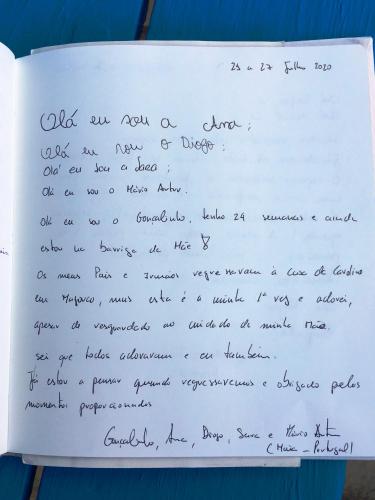 21 a 27 Julho 2020
Olá eu sou a Ana;
Olá eu sou o Diogo;
Olá eu sou a Sara;
Olá eu sou o Mário Artur.
Olá eu sou o Gonçalinho, tenho 24 semanas e ainda
estou na barriga da Mãe
Os meus Pais e Irmãos regressaram à casa de
em, mas esta é a minha 1ª vez e adorei,
apesar de resguardado ao cuidado de minha Mãe.
sei que todos adoraram e eu também.
Já estou a pensar quando regressaremos e obrigado pelos
momentos proporcionados
Gonçalinho, Ana, Diogo, Sara e Mário Artur
(Maia - Portugal)